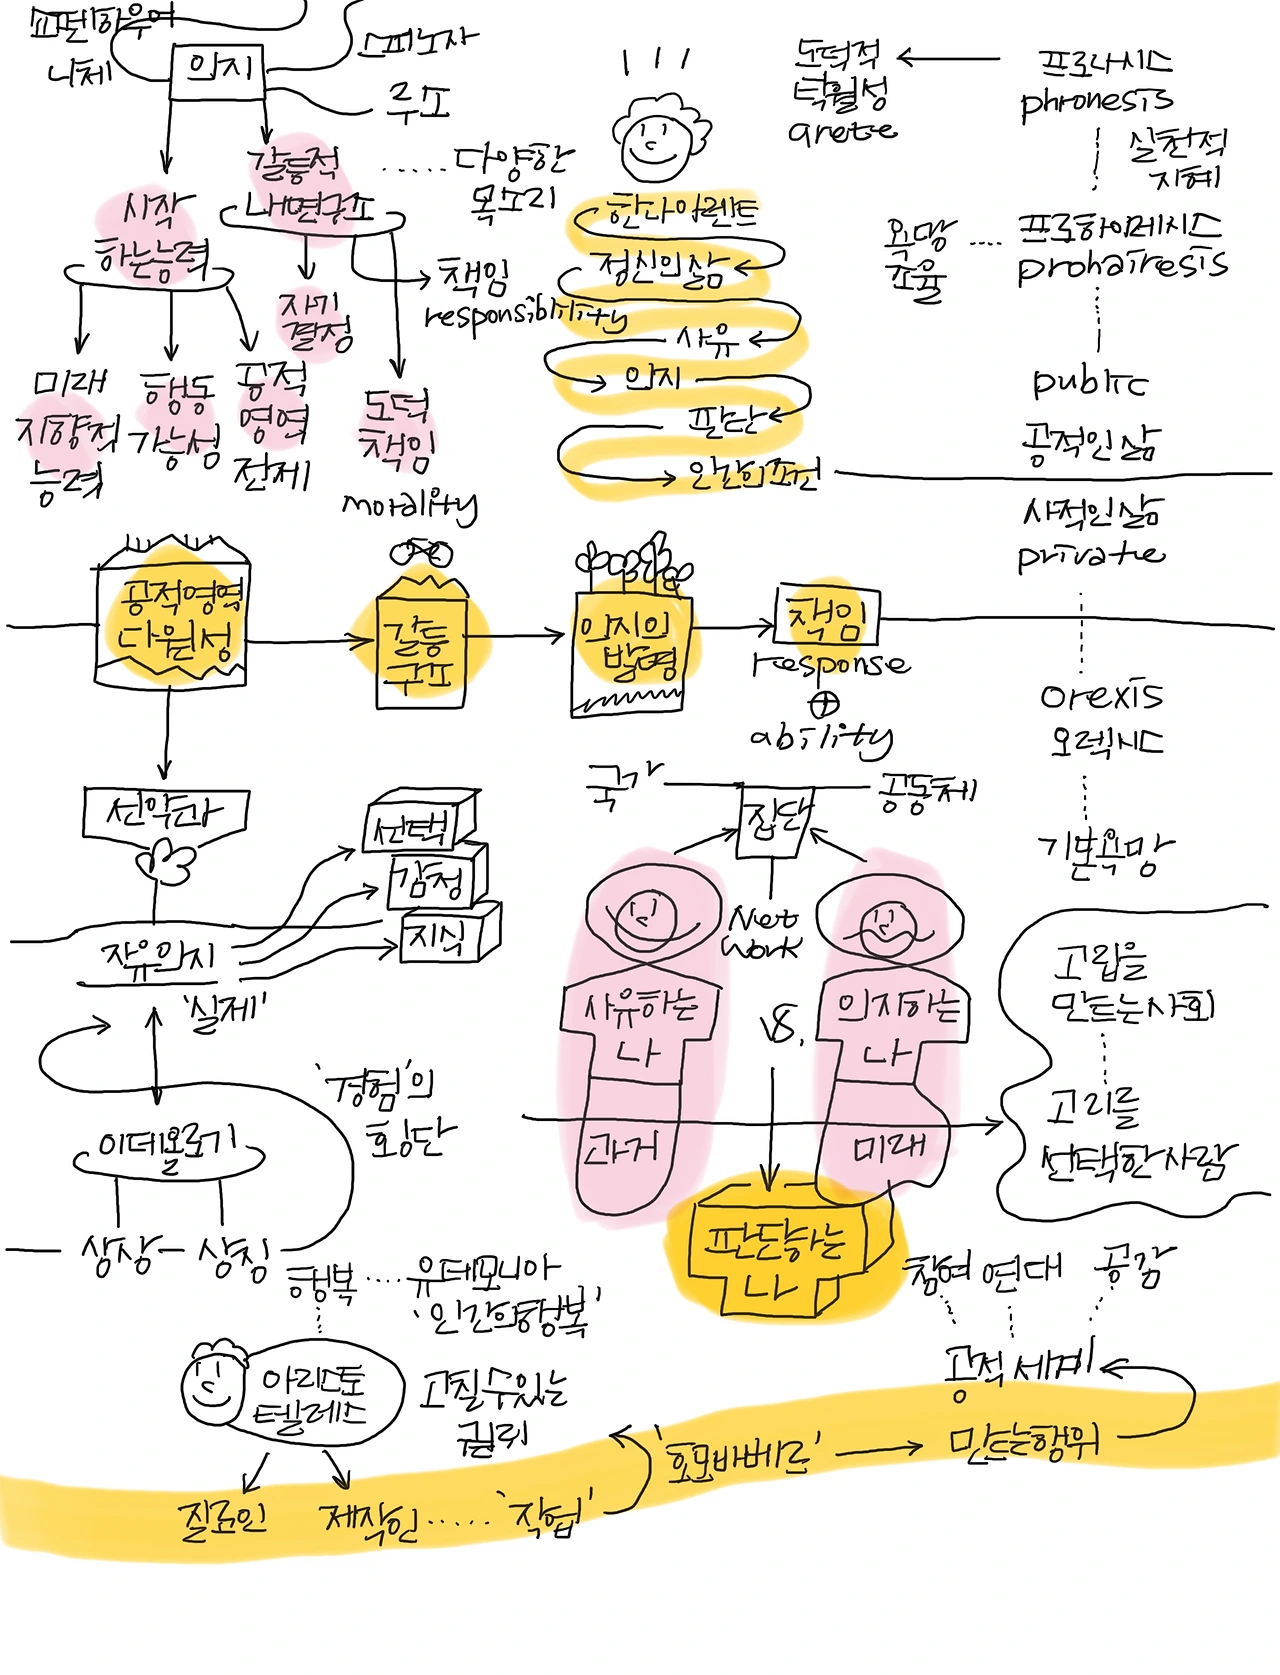 쇼펜하우어
니체
의지
스피노자
루소
갈등적
내면구조
다양한
목소리
시작
하는능력
책임
responsibility
자기
결정
미래
지향적
능력
행동
가능성
공적
영역
전제
도덕
책임
morality
한나아렌트
정신의삶
사유
의지
판단
인간의조건
도덕적
탁월성
arete
프로네시스
phronesis
실천적
지혜
욕망
조율
프로하이레시스
prohairesis
public
공적인삶
사적인삶
private
orexis
오렉시스
기본욕망
공적영역
다원성
갈등
구조
의지의
발명
책임
response
⊕
ability
선악과
자유의지
'실제'
선택
감정
지식
이데올로기
상상
상징
'경험'의
횡단
국가
집단
공동체
Net
work
사유하는
나
과거
VS.
의지하는
나
미래
판단하는
나
고립을
만드는사회
고리를
선택한사람
참여 연대 공감
공적 세계
행복
유데모니아
'인간의행복'
아리스토
텔레스
고칠수있는
질료인
제작인
'작업'
'호모파베르'
만드는행위